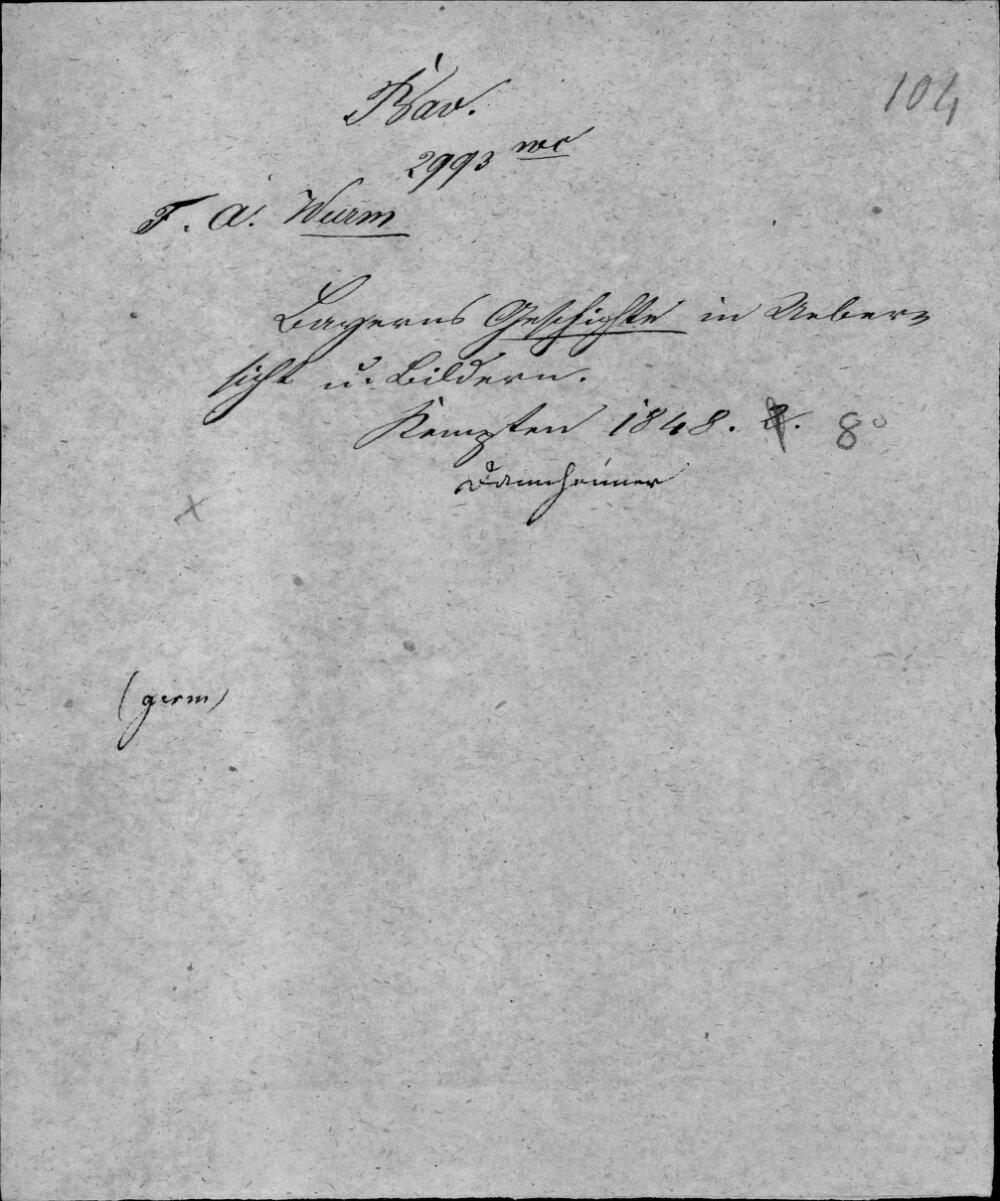 104
Bav.
2993 wc
F. A. Wurm
Bayerns Geschichte in Ueber=
sicht u. Bildern.
Kempten 1848. 8. 8°
Dannheimer
x
(germ)